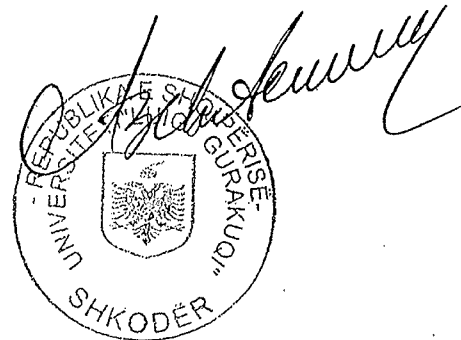 - REPUBLIKA E SHQIPËRISË -
UNIVERSITETI "LUIGJ GURAKUQI"
SHKODËR